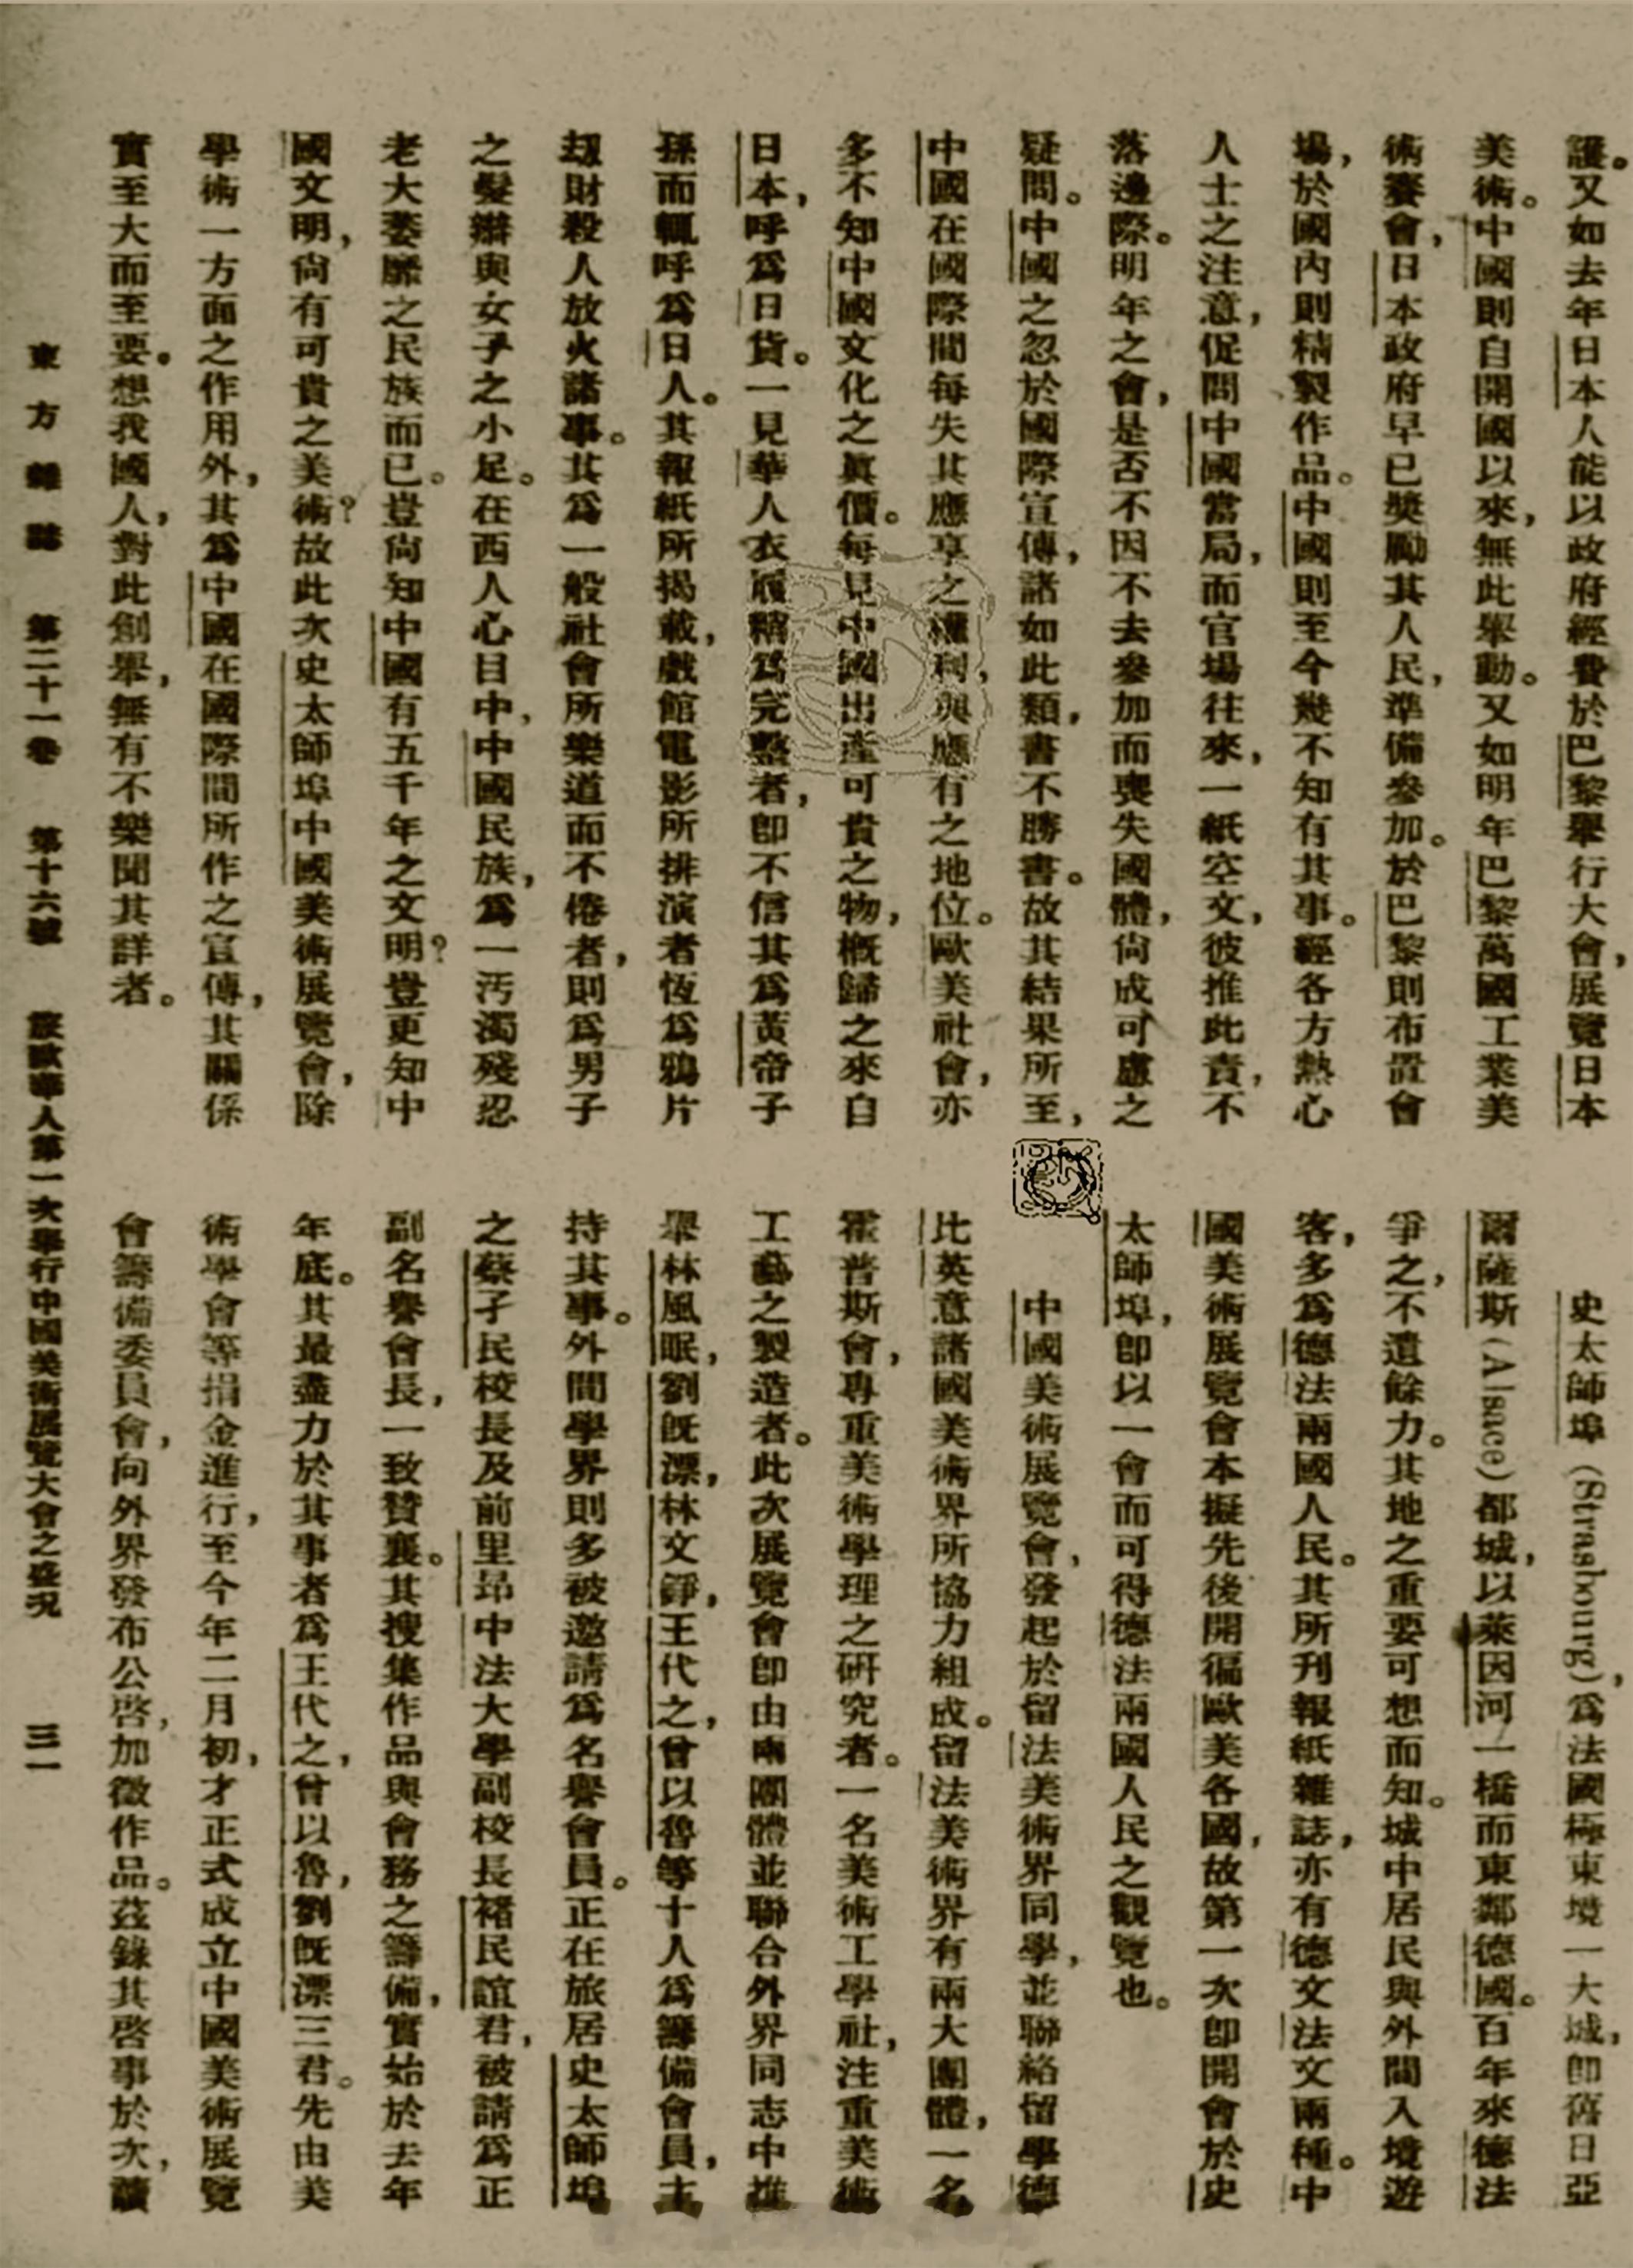 護。又如去年日本人能以政府經費於巴黎舉行大會，展覽日本
美術。中國則自開國以來，無此舉動。又如明年巴黎萬國工業美
術賽會，日本政府早已獎勵其人民，準備參加。於巴黎則布置會
場，於國內則精製作品。中國則至今幾不知有其事。經各方熱心
人士之注意，促問中國當局，而官場往來，一紙空文，彼推此責，不
落邊際。明年之會，是否不因不去參加而喪失國體，尙成可慮之
疑問。中國之忽於國際宣傳，諸如此類，書不勝書。故其結果所至，
中國在國際間每失其應享之權利，與應有之地位。歐美社會，亦
多不知中國文化之眞價。每見中國出產可貴之物，槪歸之來自
日本，呼爲日貨。一見華人衣履精爲完整者，卽不信其爲黃帝子
孫而輒呼爲日人。其報紙所揭載，戲館電影所排演者恆爲鴉片
刼財殺人放火諸事。其爲一般社會所樂道而不倦者，則爲男子
之髮辮與女子之小足。在西人心目中，中國民族，爲一汚濁殘忍
老大萎靡之民族而已。豈尙知中國有五千年之文明？豈更知中
國文明，尙有可貴之美術？故此次史太師埠中國美術展覽會，除
學術一方面之作用外，其爲中國在國際間所作之宣傳，其關係
實至大而至要。想我國人，對此創舉，無有不樂聞其詳者。
史太師埠（Strasbourg），爲法國極東境一大城，卽舊日亞
爾薩斯（Alsace）都城，以萊因河一橋而東鄰德國。百年來德法
爭之，不遺餘力。其地之重要可想而知。城中居民與外間入境遊
客，多爲德法兩國人民。其所刊報紙雜誌，亦有德文法文兩種。中
國美術展覽會本擬先後開徧歐美各國，故第一次卽開會於史
太師埠，卽以一會而可得德法兩國人民之觀覽也。
中國美術展覽會，發起於留法美術界同學，並聯絡留學德
比英意諸國美術界所協力組成。留法美術界有兩大團體，一名
霍普斯會，專重美術學理之研究者。一名美術工學社，注重美術
工藝之製造者。此次展覽會卽由兩團體並聯合外界同志中推
舉林風眠，劉旣漂，林文錚，王代之，曾以魯等十人爲籌備會員，主
持其事。外間學界則多被邀請爲名譽會員。正在旅居史太師埠
之蔡孑民校長及前里昂中法大學副校長褚民誼君，被請爲正
副名譽會長，一致贊襄。其搜集作品與會務之籌備，實始於去年
年底。其最盡力於其事者爲王代之，曾以魯，劉旣漂三君。先由美
術學會等捐金進行，至今年二月初，才正式成立中國美術展覽
會籌備委員會，向外界發布公啓，加徵作品。茲錄其啓事於次，讀
東方雜誌　第二十一卷　第十六號　旅歐華人第一次舉行中國美術展覽大會之盛況　三一